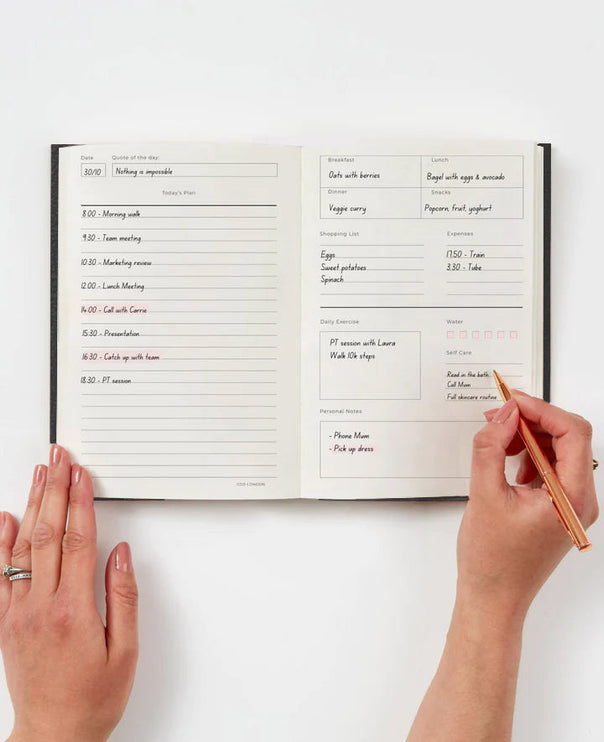 Date
Quote of the day:
30/10
Nothing is impossible
Today's Plan
8:00 - Morning walk
9:30 - Team meeting
10:30 - Marketing review
12:00 - Lunch Meeting
14:00 - Call with Carrie
15:30 - Presentation
16:30 - Catch up with team
18:30 - PT session
Breakfast
Lunch
Oats with berries
Bagel with eggs & avocado
Dinner
Snacks
Veggie curry
Popcorn, fruit, yoghurt
Shopping List
Expenses
Eggs
17.50 - Train
Sweet potatoes
3.30 - Tube
Spinach
Daily Exercise
Water
PT session with Laura
Walk 10k steps
Self Care
Read in the bath
Call Mum
Full skincare routine
Personal Notes
- Phone Mum
- Pick up dress